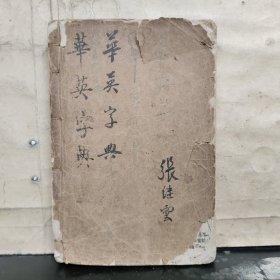 華英字典
華英字典
張佳雲